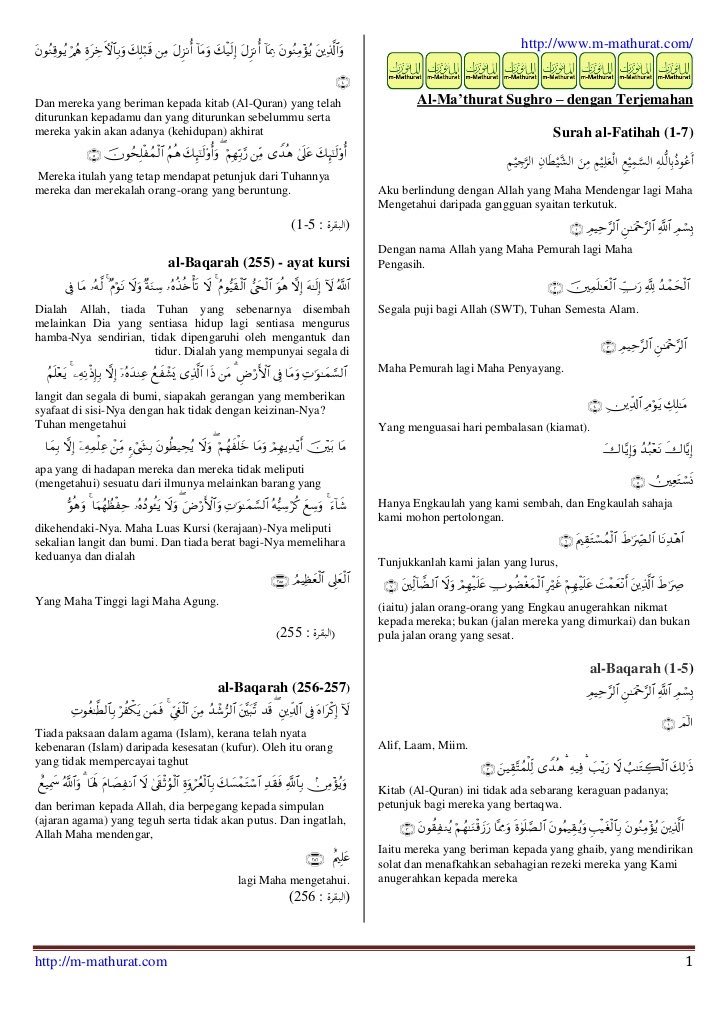 http://www.m-mathurat.com/
المأثورات المأثورات المأثورات المأثورات المأثورات المأثورات المأثورات المأثورات
m-Mathurat m-Mathurat m-Mathurat m-Mathurat m-Mathurat m-Mathurat m-Mathurat m-Mathurat
Al-Ma'thurat Sughro – dengan Terjemahan
Surah al-Fatihah (1-7)
أَعُوذُ بِاللَّهِ السَّمِيْعِ الْعَلِيْمِ مِنَ الشَّيْطَانِ الرَّجِيْمِ
Aku berlindung dengan Allah yang Maha Mendengar lagi Maha
Mengetahui daripada gangguan syaitan terkutuk.
بِسْمِ ٱللَّهِ ٱلرَّحْمَـٰنِ ٱلرَّحِيمِ ۝١
Dengan nama Allah yang Maha Pemurah lagi Maha
Pengasih.
ٱلْحَمْدُ لِلَّهِ رَبِّ ٱلْعَـٰلَمِينَ ۝٢
Segala puji bagi Allah (SWT), Tuhan Semesta Alam.
ٱلرَّحْمَـٰنِ ٱلرَّحِيمِ ۝٣
Maha Pemurah lagi Maha Penyayang.
مَـٰلِكِ يَوْمِ ٱلدِّينِ ۝٤
Yang menguasai hari pembalasan (kiamat).
إِيَّاكَ نَعْبُدُ وَإِيَّاكَ
نَسْتَعِينُ ۝٥
Hanya Engkaulah yang kami sembah, dan Engkaulah sahaja
kami mohon pertolongan.
ٱهْدِنَا ٱلصِّرَٰطَ ٱلْمُسْتَقِيمَ ۝٦
Tunjukkanlah kami jalan yang lurus,
صِرَٰطَ ٱلَّذِينَ أَنْعَمْتَ عَلَيْهِمْ غَيْرِ ٱلْمَغْضُوبِ عَلَيْهِمْ وَلَا ٱلضَّآلِّينَ ۝٧
(iaitu) jalan orang-orang yang Engkau anugerahkan nikmat
kepada mereka; bukan (jalan mereka yang dimurkai) dan bukan
pula jalan orang yang sesat.
al-Baqarah (1-5)
بِسْمِ ٱللَّهِ ٱلرَّحْمَـٰنِ ٱلرَّحِيمِ
الٓمٓ ۝١
Alif, Laam, Miim.
ذَٰلِكَ ٱلْكِتَـٰبُ لَا رَيْبَ ۛ فِيهِ ۛ هُدًى لِّلْمُتَّقِينَ ۝٢
Kitab (Al-Quran) ini tidak ada sebarang keraguan padanya;
petunjuk bagi mereka yang bertaqwa.
ٱلَّذِينَ يُؤْمِنُونَ بِٱلْغَيْبِ وَيُقِيمُونَ ٱلصَّلَوٰةَ وَمِمَّا رَزَقْنَـٰهُمْ يُنفِقُونَ ۝٣
Iaitu mereka yang beriman kepada yang ghaib, yang mendirikan
solat dan menafkahkan sebahagian rezeki mereka yang Kami
anugerahkan kepada mereka
وَٱلَّذِينَ يُؤْمِنُونَ بِمَآ أُنزِلَ إِلَيْكَ وَمَآ أُنزِلَ مِن قَبْلِكَ وَبِٱلْـَٔاخِرَةِ هُمْ يُوقِنُونَ
۝٤
Dan mereka yang beriman kepada kitab (Al-Quran) yang telah
diturunkan kepadamu dan yang diturunkan sebelummu serta
mereka yakin akan adanya (kehidupan) akhirat
أُو۟لَـٰٓئِكَ عَلَىٰ هُدًى مِّن رَّبِّهِمْ ۖ وَأُو۟لَـٰٓئِكَ هُمُ ٱلْمُفْلِحُونَ ۝٥
Mereka itulah yang tetap mendapat petunjuk dari Tuhannya
mereka dan merekalah orang-orang yang beruntung.
(البقرة : 5-1)
al-Baqarah (255) - ayat kursi
ٱللَّهُ لَآ إِلَـٰهَ إِلَّا هُوَ ٱلْحَىُّ ٱلْقَيُّومُ ۚ لَا تَأْخُذُهُۥ سِنَةٌ وَلَا نَوْمٌ ۚ لَّهُۥ مَا فِى
Dialah Allah, tiada Tuhan yang sebenarnya disembah
melainkan Dia yang sentiasa hidup lagi sentiasa mengurus
hamba-Nya sendirian, tidak dipengaruhi oleh mengantuk dan
tidur. Dialah yang mempunyai segala di
ٱلسَّمَـٰوَٰتِ وَمَا فِى ٱلْأَرْضِ ۗ مَن ذَا ٱلَّذِى يَشْفَعُ عِندَهُۥٓ إِلَّا بِإِذْنِهِۦ ۚ يَعْلَمُ
langit dan segala di bumi, siapakah gerangan yang memberikan
syafaat di sisi-Nya dengan hak tidak dengan keizinan-Nya?
Tuhan mengetahui
مَا بَيْنَ أَيْدِيهِمْ وَمَا خَلْفَهُمْ ۖ وَلَا يُحِيطُونَ بِشَىْءٍ مِّنْ عِلْمِهِۦٓ إِلَّا بِمَا
apa yang di hadapan mereka dan mereka tidak meliputi
(mengetahui) sesuatu dari ilmunya melainkan barang yang
شَآءَ ۚ وَسِعَ كُرْسِيُّهُ ٱلسَّمَـٰوَٰتِ وَٱلْأَرْضَ ۖ وَلَا يَـُٔودُهُۥ حِفْظُهُمَا ۚ وَهُوَ
dikehendaki-Nya. Maha Luas Kursi (kerajaan)-Nya meliputi
sekalian langit dan bumi. Dan tiada berat bagi-Nya memelihara
keduanya dan dialah
ٱلْعَلِىُّ ٱلْعَظِيمُ ۝٢٥٥
Yang Maha Tinggi lagi Maha Agung.
(البقرة : 255)
al-Baqarah (256-257)
لَآ إِكْرَاهَ فِى ٱلدِّينِ ۖ قَد تَّبَيَّنَ ٱلرُّشْدُ مِنَ ٱلْغَىِّ ۚ فَمَن يَكْفُرْ بِٱلطَّـٰغُوتِ
Tiada paksaan dalam agama (Islam), kerana telah nyata
kebenaran (Islam) daripada kesesatan (kufur). Oleh itu orang
yang tidak mempercayai taghut
وَيُؤْمِنۢ بِٱللَّهِ فَقَدِ ٱسْتَمْسَكَ بِٱلْعُرْوَةِ ٱلْوُثْقَىٰ لَا ٱنفِصَامَ لَهَا ۗ وَٱللَّهُ سَمِيعٌ
dan beriman kepada Allah, dia berpegang kepada simpulan
(ajaran agama) yang teguh serta tidak akan putus. Dan ingatlah,
Allah Maha mendengar,
عَلِيمٌ ۝٢٥٦
lagi Maha mengetahui.
(البقرة : 256)
http://m-mathurat.com
1